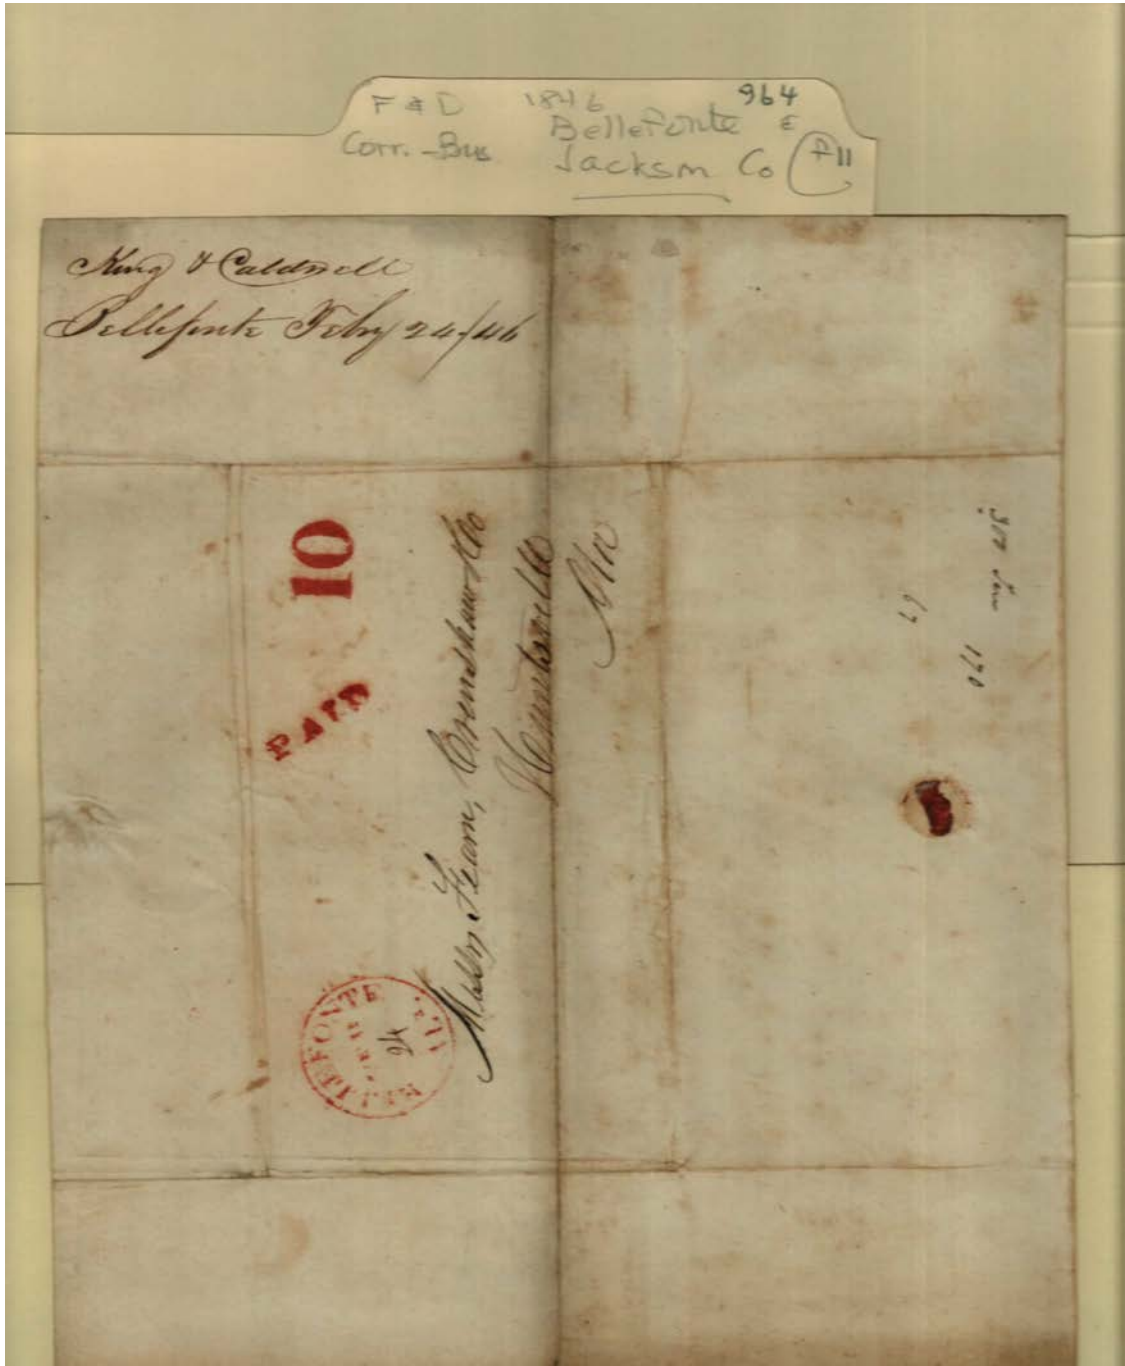 F & D 1846 964
Corr. - Bus Bellefonte E
Jackson Co P11
King & Caldwell
Bellefonte Feby 24/46
10
PAID
BELLEFONTE
24
Messrs Fearn, Crenshaw & Co
Huntsville
Ala
170
67